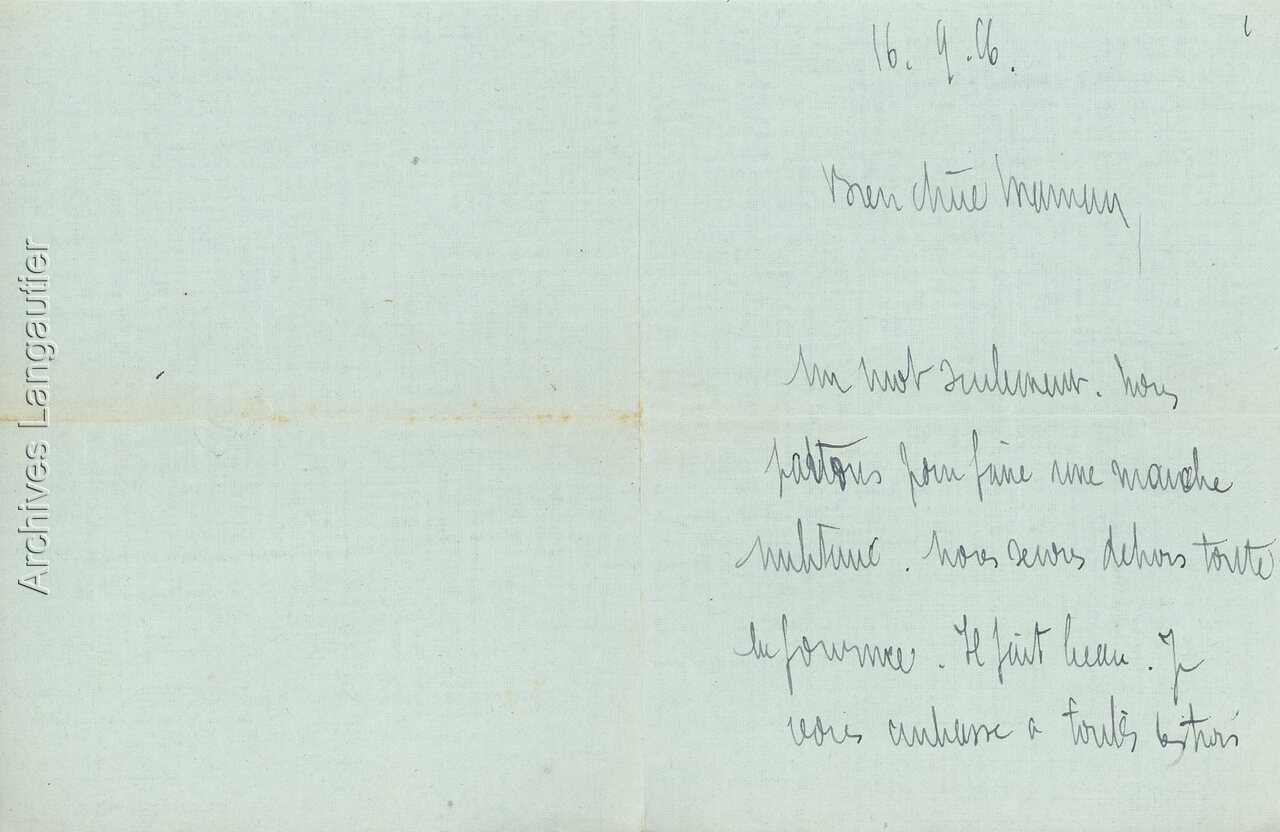 Archives Langautier
16. 9. 16.
Bien chère Maman,
Un mot seulement. Nous
partons pour faire une marche
militaire. Nous serons dehors toute
la journée. Il fait beau. Je
vous embrasse a toutes les trois